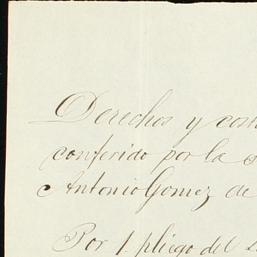 Derechos y cost
conferido por la
Antonio Gomez de
Por 1 pliego del